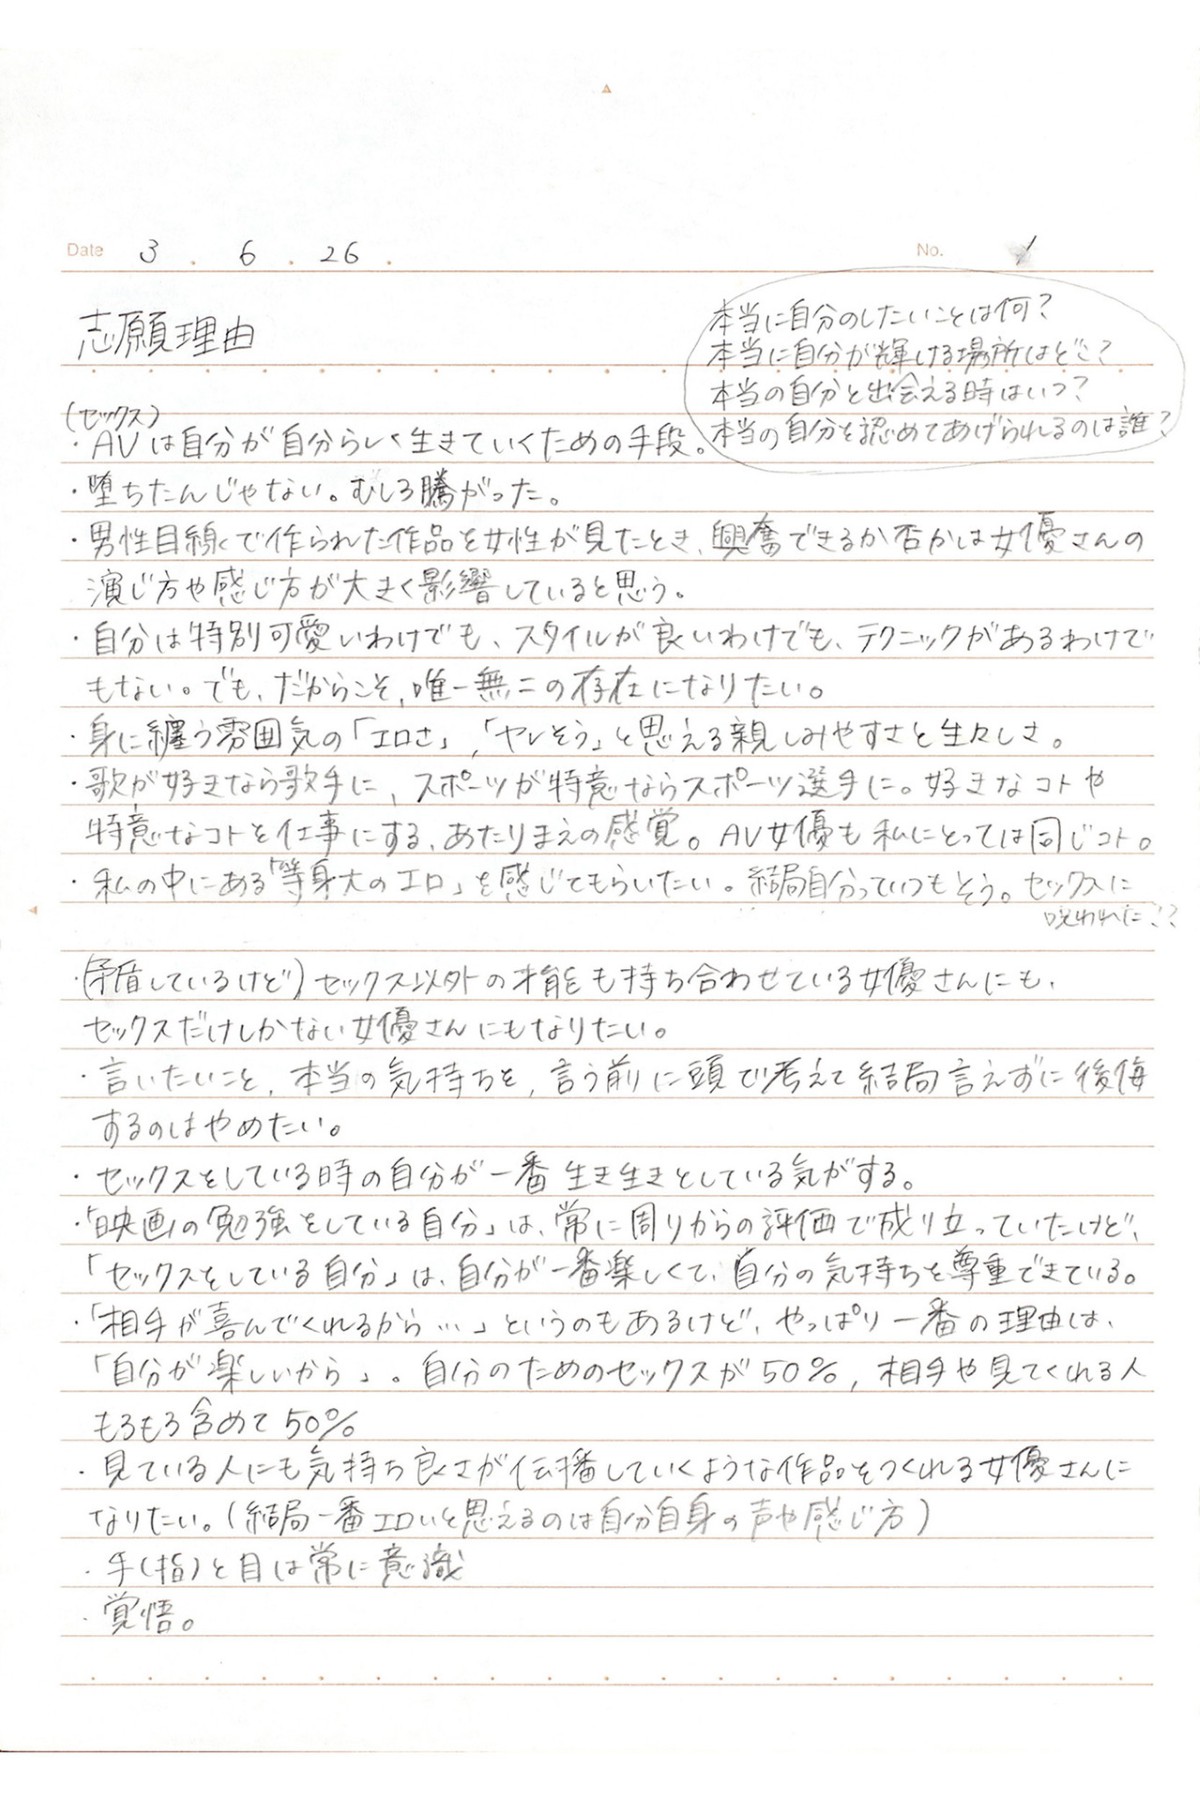 Date 3 . 6 . 26 .
No. 1
志願理由
本当に自分のしたいことは何?
本当に自分が輝ける場所はどこ?
本当の自分と出会える時はいつ?
本当の自分を認めてあげられるのは誰?
(セックス)
・AVは自分が自分らしく生きていくための手段。
・堕ちたんじゃない。むしろ騰がった。
・男性目線で作られた作品を女性が見たとき、興奮できるか否かは女優さんの
演じ方や感じ方が大きく影響していると思う。
・自分は特別可愛いわけでも、スタイルが良いわけでも、テクニックがあるわけで
もない。でも、だからこそ、唯一無二の存在になりたい。
・身に纏う雰囲気の「エロさ」,「ヤレそう」と思える親しみやすさと生々しさ。
・歌が好きなら歌手に、スポーツが特意ならスポーツ選手に。好きなコトや
特意なコトを仕事にする、あたりまえの感覚。AV女優も私にとっては同じコト。
・私の中にある「等身大のエロ」を感じてもらいたい。結局自分っていつもそう。セックスに
呪われた!?
・(矛盾しているけど)セックス以外の才能も持ち合わせている女優さんにも、
セックスだけしかない女優さんにもなりたい。
・言いたいこと、本当の気持ちを、言う前に頭で考えて結局言えずに後悔
するのはやめたい。
・セックスをしている時の自分が一番生き生きとしている気がする。
・「映画の勉強をしている自分」は、常に周りからの評価で成り立っていたけど、
「セックスをしている自分」は、自分が一番楽しくて、自分の気持ちを尊重できている。
・「相手が喜んでくれるから…」というのもあるけど、やっぱり一番の理由は、
「自分が楽しいから」。自分のためのセックスが50%,相手や見てくれる人
もろもろ含めて50%
・見ている人にも気持ち良さが伝播していくような作品をつくれる女優さんに
なりたい。(結局一番エロいと思えるのは自分自身の声や感じ方)
・手(指)と目は常に意識
・覚悟。